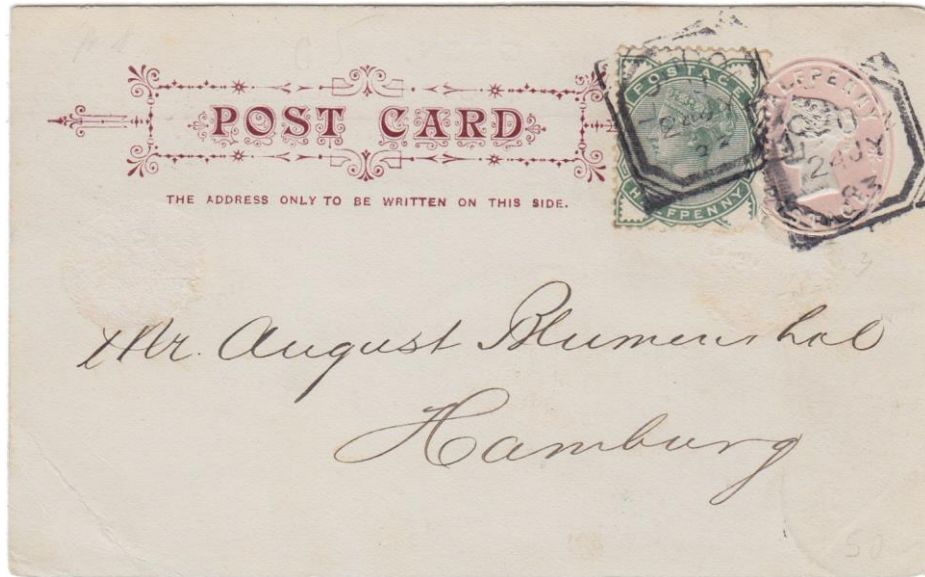 POST CARD
THE ADDRESS ONLY TO BE WRITTEN ON THIS SIDE.
POSTAGE
HALFPENNY
HALFPENNY
24 JY
83
Mr. August Blumenthal
Hamburg
3
50